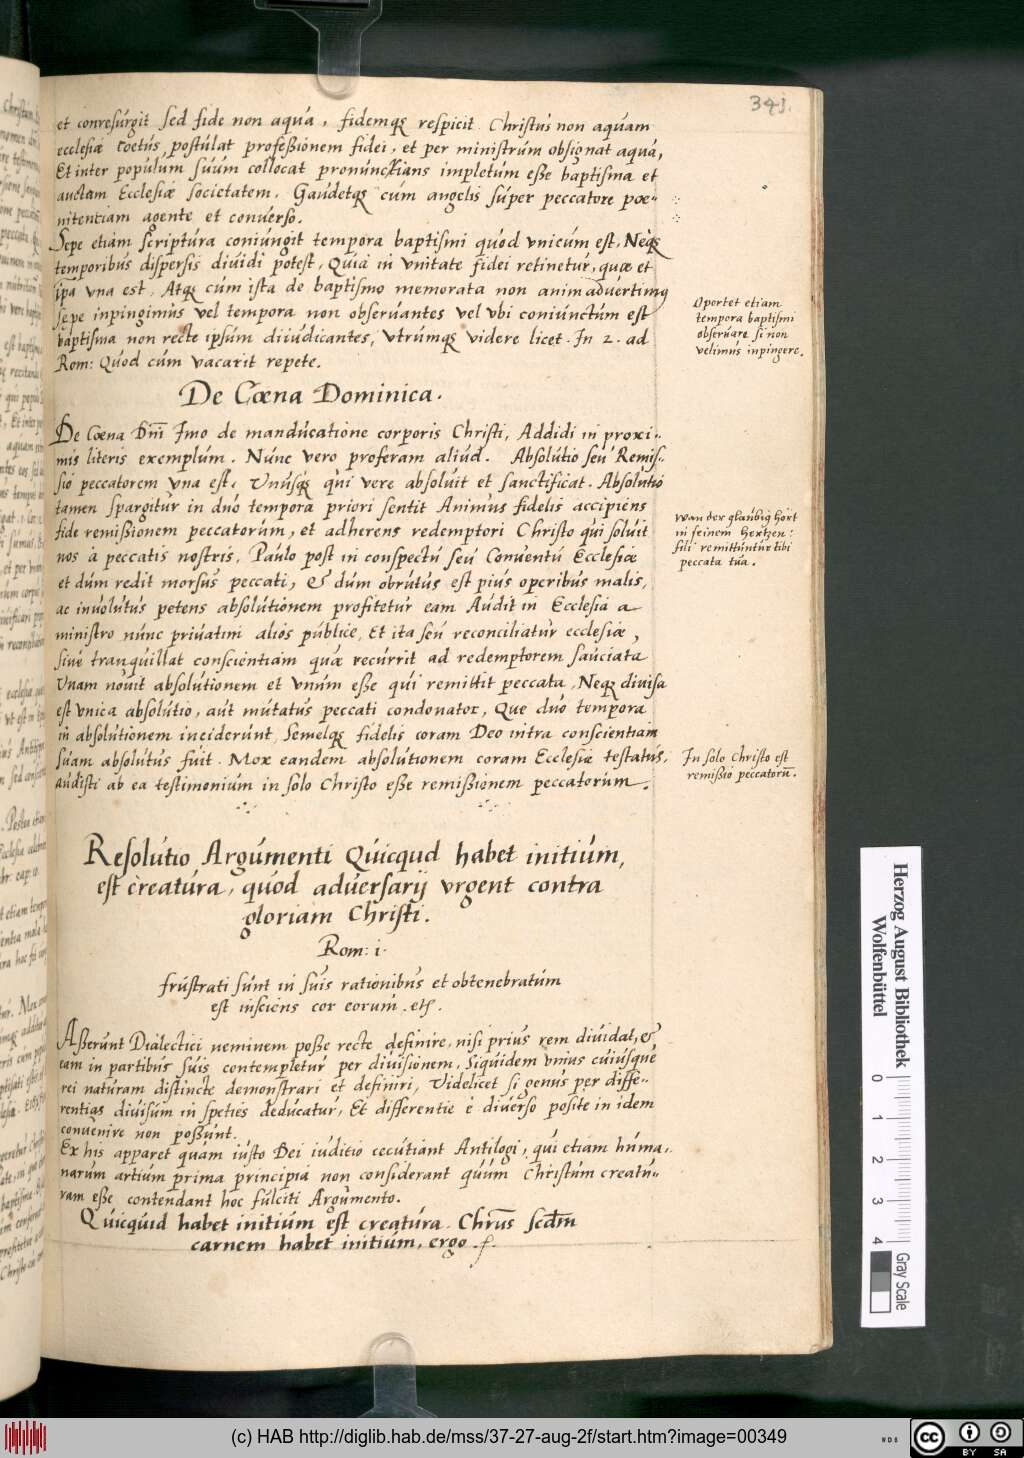 341.
et conresurgit sed fide non aqua, fidemq; respicit. Christus non aquam
ecclesiæ coetus postulat professionem fidei, et per ministrum obsignat aqua,
Et inter populum suum collocat pronunctians impletum esse baptisma et
auctam Ecclesiæ societatem. Gaudetq; cum angelis super peccatore poe-
nitentiam agente et conuerso.
Sepe etiam scriptura coniungit tempora baptismi quod vnicum est, Neq;
temporibus dispersis diuidi potest, Quia in vnitate fidei retinetur, quæ et
ipa vna est, Atq; cum ista de baptismo memorata non animaduertimus
sepe inpingimus vel tempora non obseruantes vel vbi coniunctum est
baptisma non recte ipsum diiudicantes, vtrumq; videre licet. In 2. ad
Rom: Quod cum vacarit repete.
Oportet etiam
tempora baptismi
obseruare si non
velimus inpingere.
De Cœna Dominica.
De Cœna Dni Imo de manducatione corporis Christi, Addidi in proxi-
mis literis exemplum. Nunc vero proferam aliud. Absolutio seu Remis-
sio peccatorem vna est, Vnusq; qui vere absoluit et sanctificat. Absolutio
tamen spargitur in duo tempora priori sentit Animus fidelis accipiens
fide remissionem peccatorum, et adherens redemptori Christo qui soluit
nos à peccatis nostris, Paulo post in conspectu seu Conuentu Ecclesiæ
et dum redit morsus peccati, & dum obrutus est pius operibus malis,
ac inuolutus petens absolutionem profitetur eam Audit in Ecclesia a
ministro nunc priuatim alios publice, Et ita seu reconciliatur ecclesiæ,
siue tranquillat conscientiam quæ recurrit ad redemptorem sauciata
Vnam nouit absolutionem et vnum esse qui remittit peccata, Neq; diuisa
est vnica absolutio, aut mutatus peccati condonator, Que duo tempora
in absolutionem inciderunt, Semelq; fidelis coram Deo intra conscientiam
suam absolutus fuit. Mox eandem absolutionem coram Ecclesiæ testatus,
audisti ab ea testimonium in solo Christo esse remissionem peccatorum.
wan der glaubig hört
in seinem Hertzen:
fili remittuntur tibi
peccata tua.
In solo Christo est
remissio peccatorū.
Resolutio Argumenti Quicqud habet initium,
est creatura, quod aduersarij vrgent contra
gloriam Christi.
Rom: i.
frustrati sunt in suis rationibus et obtenebratum
est insciens cor eorum. etc.
Asserunt Dialectici neminem posse recte definire, nisi prius rem diuidat, &
eam in partibus suis contempletur per diuisionem, Siquidem vnius cuiusque
rei naturam distincte demonstrari et definiri, Videlicet si genus per diffe-
rentias diuisum in speties deducatur, Et differentie è diuerso posite in idem
conuenire non possunt.
Ex his apparet quam iusto Dei iuditio cecutiant Antilogi, qui etiam huma-
narum artium prima principia non considerant quum Christum creatu-
ram esse contendant hoc fulciti Argumento.
Quicquid habet initium est creatura. Chrus scdm
carnem habet initium, ergo.
Herzog August Bibliothek
Wolfenbüttel
0 1 2 3 4
Gray Scale
(c) HAB http://diglib.hab.de/mss/37-27-aug-2f/start.htm?image=00349
WDB
cc BY SA